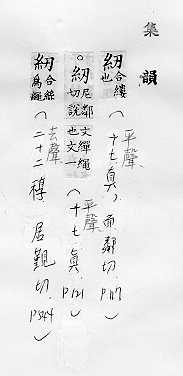 集韻
紉合縷也（平聲十七真，而鄰切，P.117）
。紉尼鄰切說文繟繩也文一（平聲十七真，P121）
紉合絲爲繩（去聲二十二稕居覲切，P544）